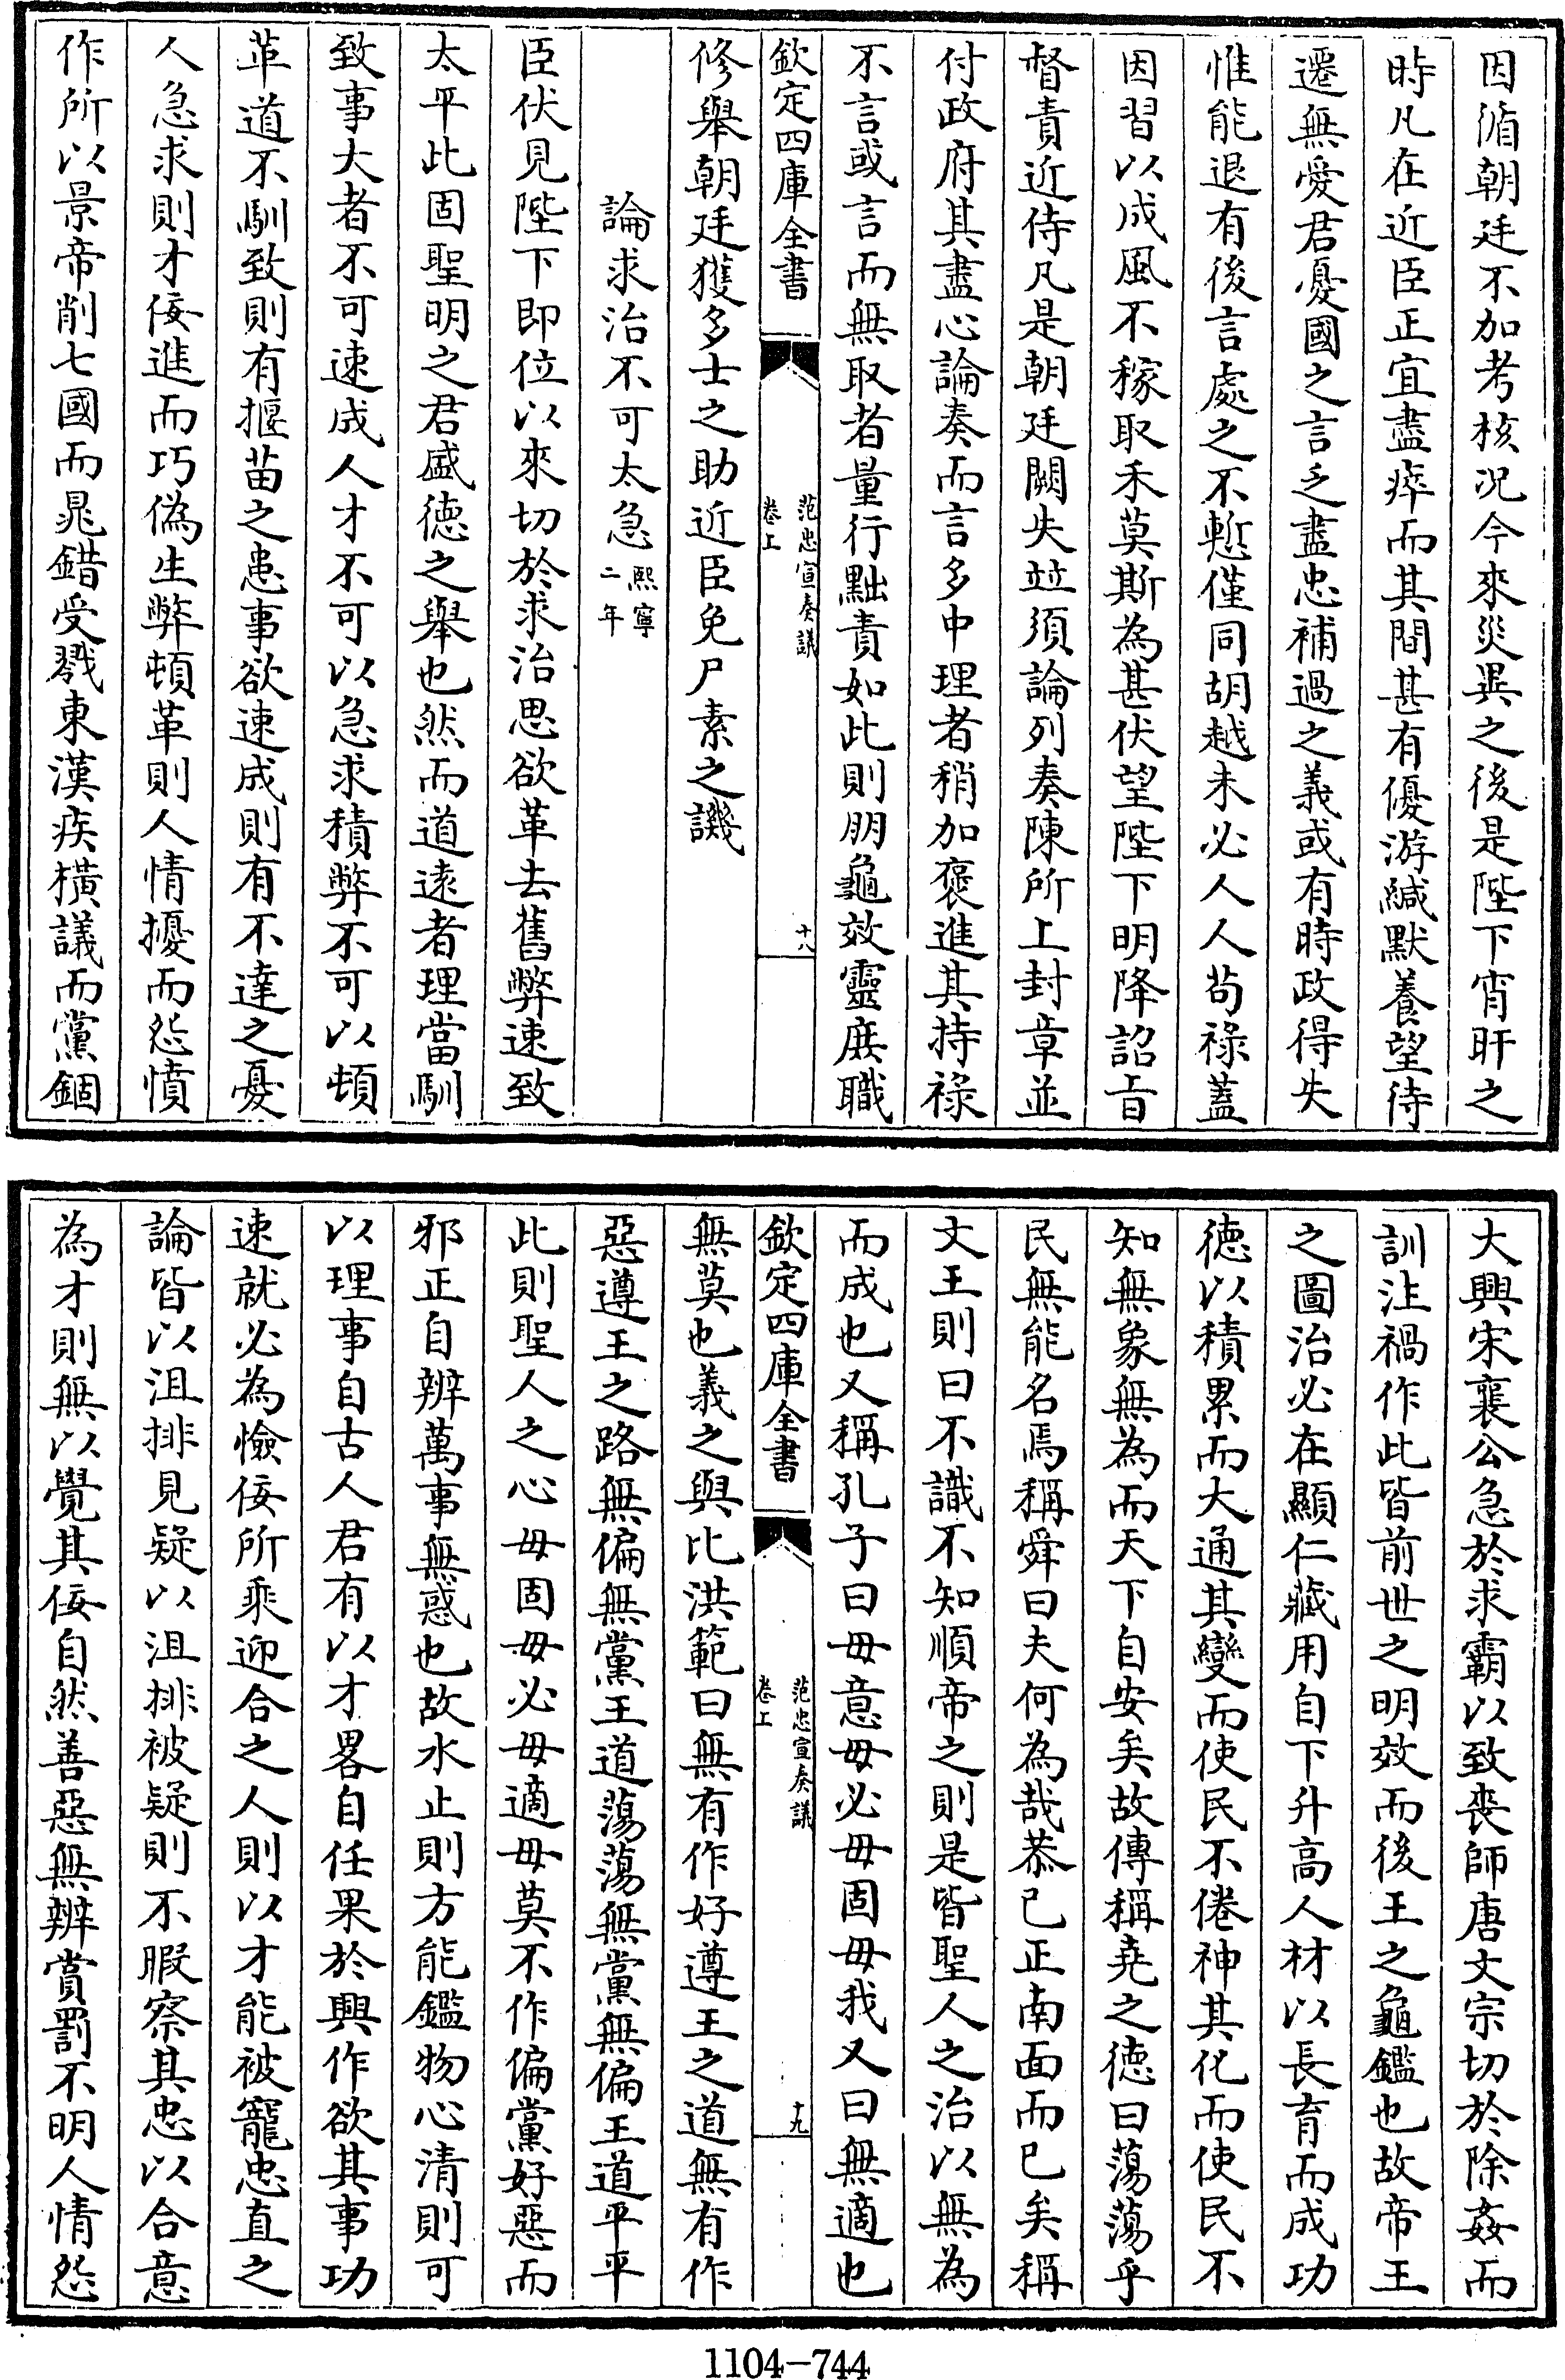 因循朝廷不加考核况今來災異之後是陛下宵旰之
時凡在近臣正宜盡瘁而其間甚有優游緘默養望待
遷無愛君憂國之言乏盡忠補過之義或有時政得失
惟能退有後言處之不慙僅同胡越未必人人茍祿蓋
因習以成風不稼取禾莫斯為甚伏望陛下明降詔旨
督責近侍凡是朝廷闕失竝須論列奏陳所上封章並
付政府其盡心論奏而言多中理者稍加褒進其持祿
不言或言而無取者量行黜責如此則朋龜效靈庶職
欽定四庫全書
范忠宣奏議
卷上
十八
修舉朝廷獲多士之助近臣免尸素之譏
論求治不可太急熙寧二年
臣伏見陛下即位以來切於求治思欲革去舊弊速致
太平此固聖明之君盛德之舉也然而道遠者理當馴
致事大者不可速成人才不可以急求積弊不可以頓
革道不馴致則有揠苗之患事欲速成則有不達之憂
人急求則才佞進而巧偽生弊頓革則人情擾而怨憤
作所以景帝削七國而晁錯受戮東漢疾橫議而黨錮
大興宋襄公急於求霸以致喪師唐文宗切於除姦而
訓注禍作此皆前世之明效而後王之龜鑑也故帝王
之圖治必在顯仁藏用自下升高人材以長育而成功
德以積累而大通其變而使民不倦神其化而使民不
知無象無為而天下自安矣故傳稱堯之德曰蕩蕩乎
民無能名焉稱舜曰夫何為哉恭己正南面而已矣稱
文王則曰不識不知順帝之則是皆聖人之治以無為
而成也又稱孔子曰毋意毋必毋固毋我又曰無適也
欽定四庫全書
范忠宣奏議
卷上
十九
無莫也義之與比洪範曰無有作好遵王之道無有作
惡遵王之路無偏無黨王道蕩蕩無黨無偏王道平平
此則聖人之心毋固毋必毋適毋莫不作偏黨好惡而
邪正自辨萬事無惑也故水止則方能鑑物心清則可
以理事自古人君有以才畧自任果於興作欲其事功
速就必為憸佞所乘迎合之人則以才能被寵忠直之
論皆以沮排見疑以沮排被疑則不暇察其忠以合意
為才則無以覺其佞自然善惡無辨賞罰不明人情怨
1104-744